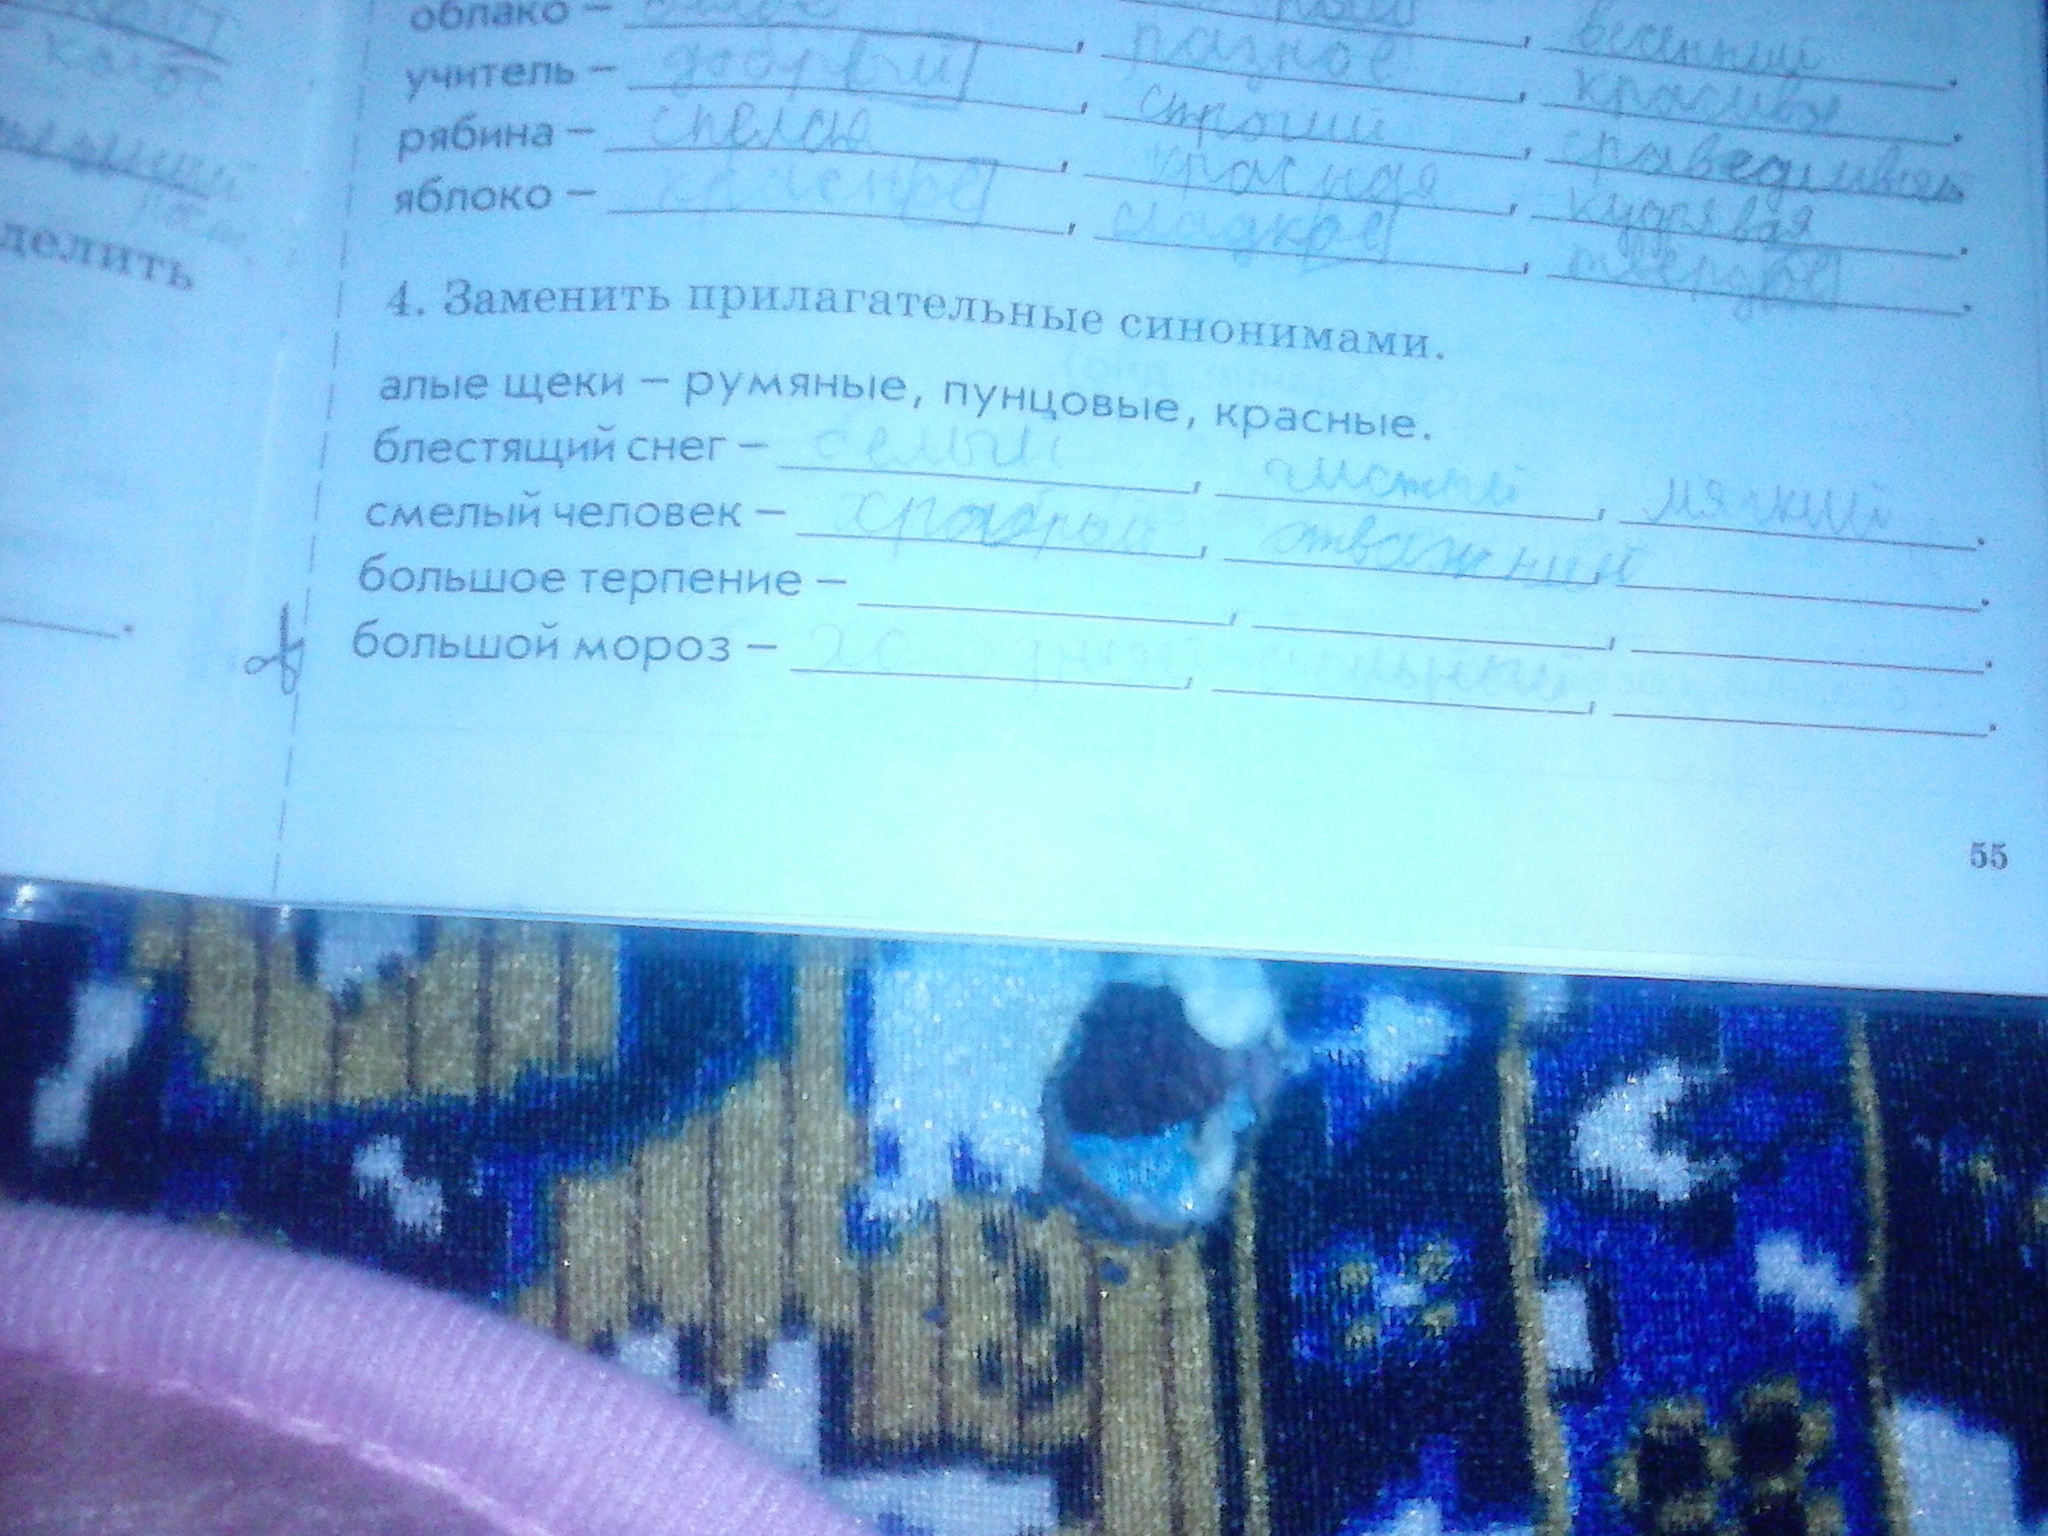 облако – белое весенний
учитель – добрый, разное, красивое.
рябина – спелая, строгий, справедливый.
яблоко – красное, красная, кудрявая.
сладкое, твердое.
делить
4. Заменить прилагательные синонимами.
алые щеки – румяные, пунцовые, красные.
блестящий снег – белый, чистый, мягкий.
смелый человек – храбрый, отважний, .
большое терпение – , , .
большой мороз – холодный, сильный, .
55